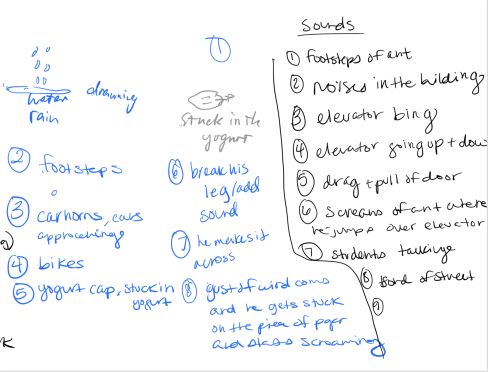 ①
water
rain
drowning
stuck in the
yogurt
② footsteps
③ car horns, cars
approachings
④ bikes
⑤ yogurt cap, stuck in
yogurt
⑥ break his
leg/add
sound
⑦ he makes it
across
⑧ gust of wind coms
and he gets stuck
on the piece of paper
and starts screaming
Sounds
① footsteps of ant
② noises in the building
③ elevator bing
④ elevator going up + down
⑤ drag + pull of door
⑥ screams of ant where
he jumps over elevator
⑦ students talking
⑧ sond of street
⑨